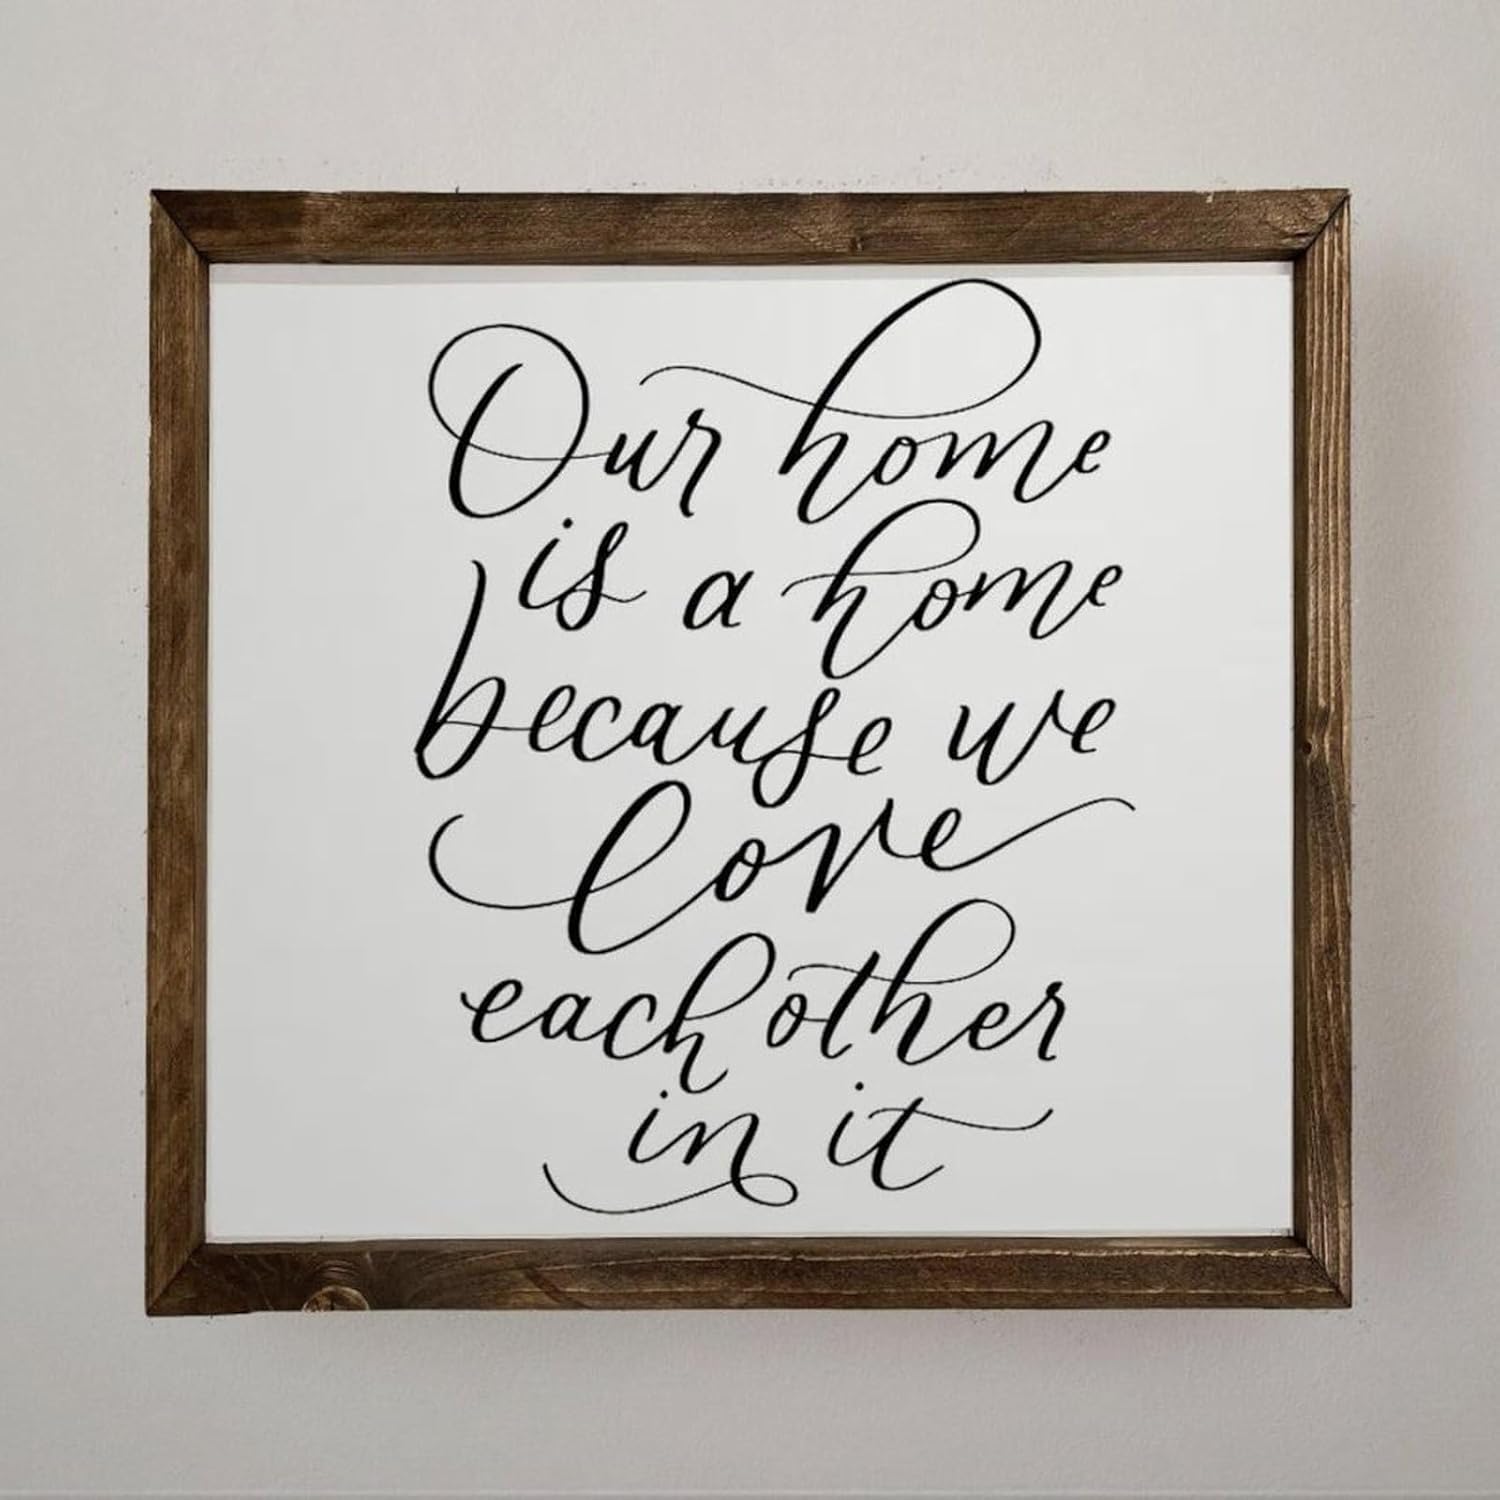 Our home
is a home
because we
love
each other
in it